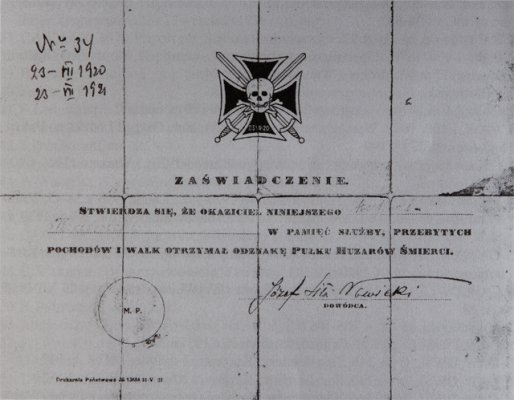 № 34
23-VII 1920
23-VII 1921
23·VII·20
ZAŚWIADCZENIE.
STWIERDZA SIĘ, ŻE OKAZICIEL NINIEJSZEGO
W PAMIĘĆ SŁUŻBY, PRZEBYTYCH
POCHODÓW I WALK OTRZYMAŁ ODZNAKĘ PUŁKU HUZARÓW ŚMIERCI.
Józef Siła Nowicki
DOWÓDCA.
M. P.
Drukarnia Państwowa